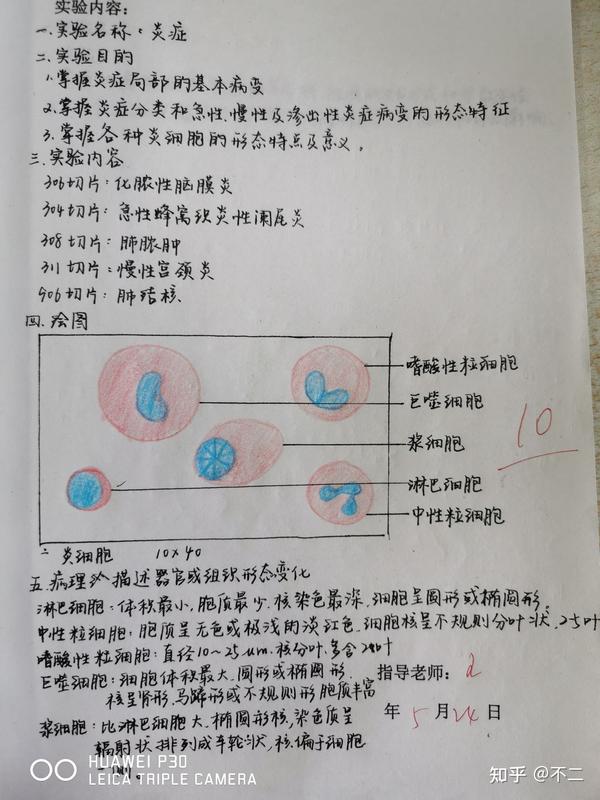 实验内容:
一.实验名称:炎症
二.实验目的
1.掌握炎症局部的基本病变
2.掌握炎症分类和急性、慢性及渗出性炎症病变的形态特征
3.掌握各种炎细胞的形态特点及意义。
三.实验内容
306切片:化脓性脑膜炎
304切片:急性蜂窝织炎性阑尾炎
308切片:肺脓肿
311切片:慢性宫颈炎
406切片:肺结核
四.绘图
嗜酸性粒细胞
巨噬细胞
浆细胞
淋巴细胞
中性粒细胞
10
炎细胞 10×40
五.病理 描述器官或组织形态变化
淋巴细胞:体积最小,胞质最少,核染色最深,细胞呈圆形或椭圆形。
中性粒细胞:胞质呈无色或极浅的淡红色,细胞核呈不规则分叶状,2~5叶
嗜酸性粒细胞:直径10~25μm,核分叶,多含2叶
巨噬细胞:细胞体积最大,圆形或椭圆形,
核呈肾形、马蹄形或不规则形胞质丰富
指导老师:
年 5 月 24 日
浆细胞:比淋巴细胞大,椭圆形核,染色质呈
辐射状排列成车轮状,核偏于细胞
一侧。
HUAWEI P30
LEICA TRIPLE CAMERA
知乎 @不二